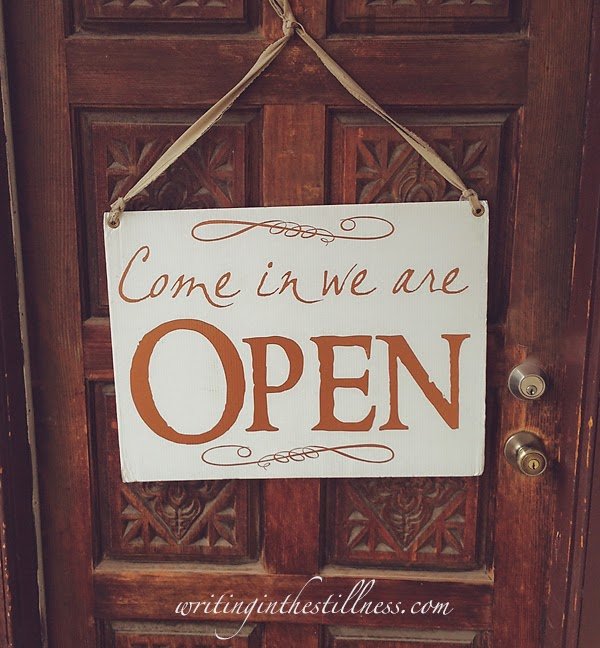 Come in we are
OPEN
writinginthestillness.com